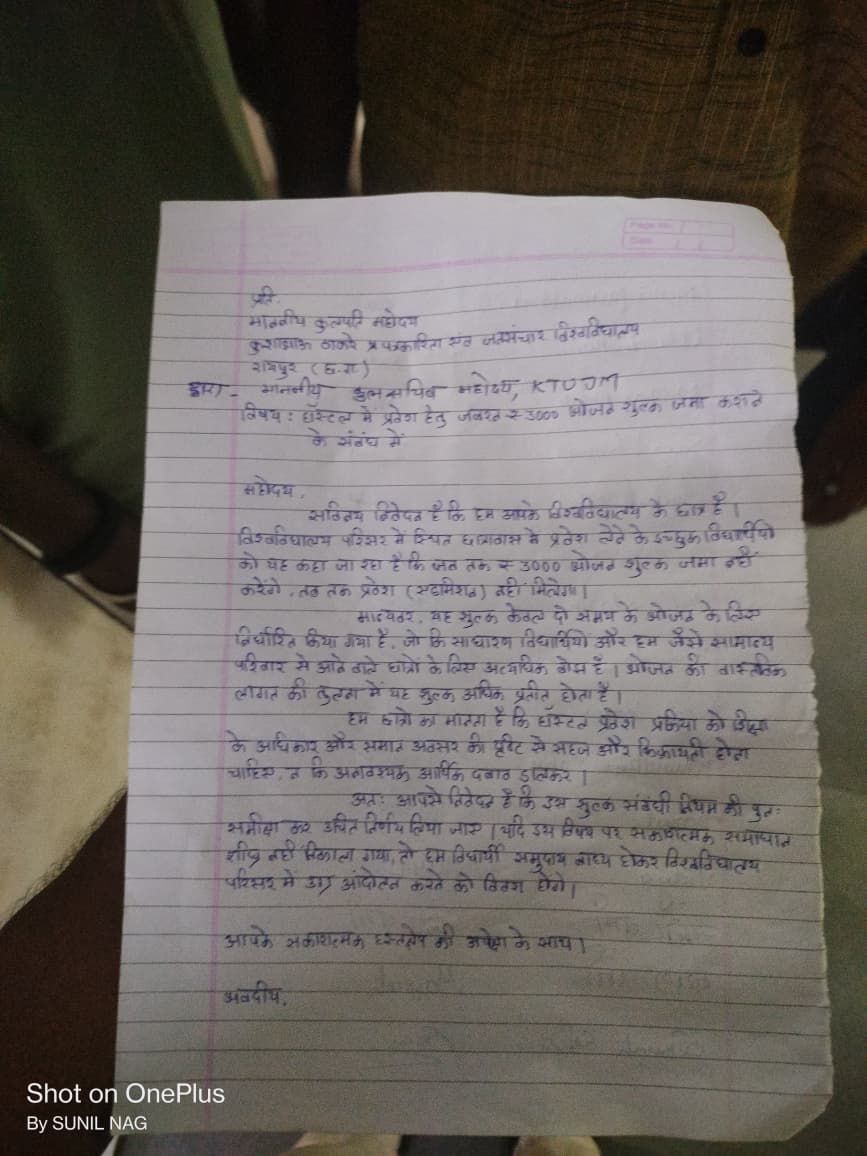 Page No.
Date
प्रति,
माननीय कुलपति महोदय
कुशाभाऊ ठाकरे पत्रकारिता एवं जनसंचार विश्वविद्यालय
रायपुर (छ.ग.)
द्वारा - माननीय कुलसचिव महोदय, KTUJM
विषय : हॉस्टल में प्रवेश हेतु जबरन ₹ 3000 भोजन शुल्क जमा कराने
के संबंध में
महोदय,
सविनय निवेदन है कि हम आपके विश्वविद्यालय के छात्र है।
विश्वविद्यालय परिसर में स्थित छात्रावास में प्रवेश लेने के इच्छुक विद्यार्थियों
को यह कहा जा रहा है कि जब तक ₹ 3000 भोजन शुल्क जमा नहीं
करेंगे, तब तक प्रवेश (एडमिशन) नहीं मिलेगा।
मान्यवर, यह शुल्क केवल दो समय के भोजन के लिए
निर्धारित किया गया है, जो कि साधारण विद्यार्थियों और हम जैसे सामान्य
परिवार से आने वाले छात्रों के लिए अत्यधिक बोझ है। भोजन की वास्तविक
लागत की तुलना में यह शुल्क अधिक प्रतीत होता है।
हम छात्रों का मानना है कि हॉस्टल प्रवेश प्रक्रिया को शिक्षा
के अधिकार और समान अवसर की दृष्टि से सहज और किफायती होना
चाहिए, न कि अनावश्यक आर्थिक दबाव डालकर।
अतः आपसे निवेदन है कि इस शुल्क संबंधी नियम की पुनः
समीक्षा कर उचित निर्णय लिया जाए। यदि इस विषय पर सकारात्मक समाधान
शीघ्र नहीं निकाला गया, तो हम विद्यार्थी समुदाय बाध्य होकर विश्वविद्यालय
परिसर में उग्र आंदोलन करने को विवश होंगे।
आपके सकारात्मक हस्तक्षेप की अपेक्षा के साथ।
भवदीय,
Shot on OnePlus
By SUNIL NAG